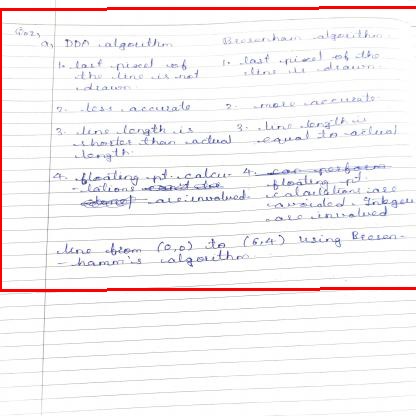 Q.2)
a) DDA algorithm    Bresenham algorithm.
1. last pixel of the line is not drawn.    1. last pixel of the line is drawn.
2. less accurate    2. more accurate.
3. line length is shorter than actual length.    3. line length is equal to actual
4. floating pt. calcu-lations are involved.    4. floating pt. calculations are avoided. Integer are involved
line from (0,0) to (6,4) using Bresen-
-hamm's algorithm.